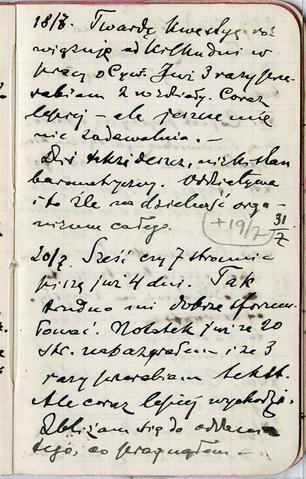 18/7. Twardą kwestyę roz
wiązuję od kilku dni w
pracy o Cyw. Już 3 razy prze
rabiam 2 rozdziały. Coraz
lepiej – ale jeszcze mię
nie zadawalnia. –
Dziś deszcz, niski stan
barometryczny. Oddziaływa
i to źle na dzielność orga
nizmu całego.
+19/7 31/7
20/7. Sześć czy 7 stronnic
piszę już 4 dni. Tak
trudno mi dobrze sformu
łować. Notatek już ze 20
str. nabazgrałem i ze 3
razy przerabiam tekst.
Ale coraz lepiej wychodzi.
Zbliżam się do oddania
tego, co pragnąłem. –